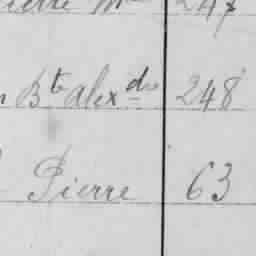 Pierre 247
Bte Alexdre 248
Pierre 63